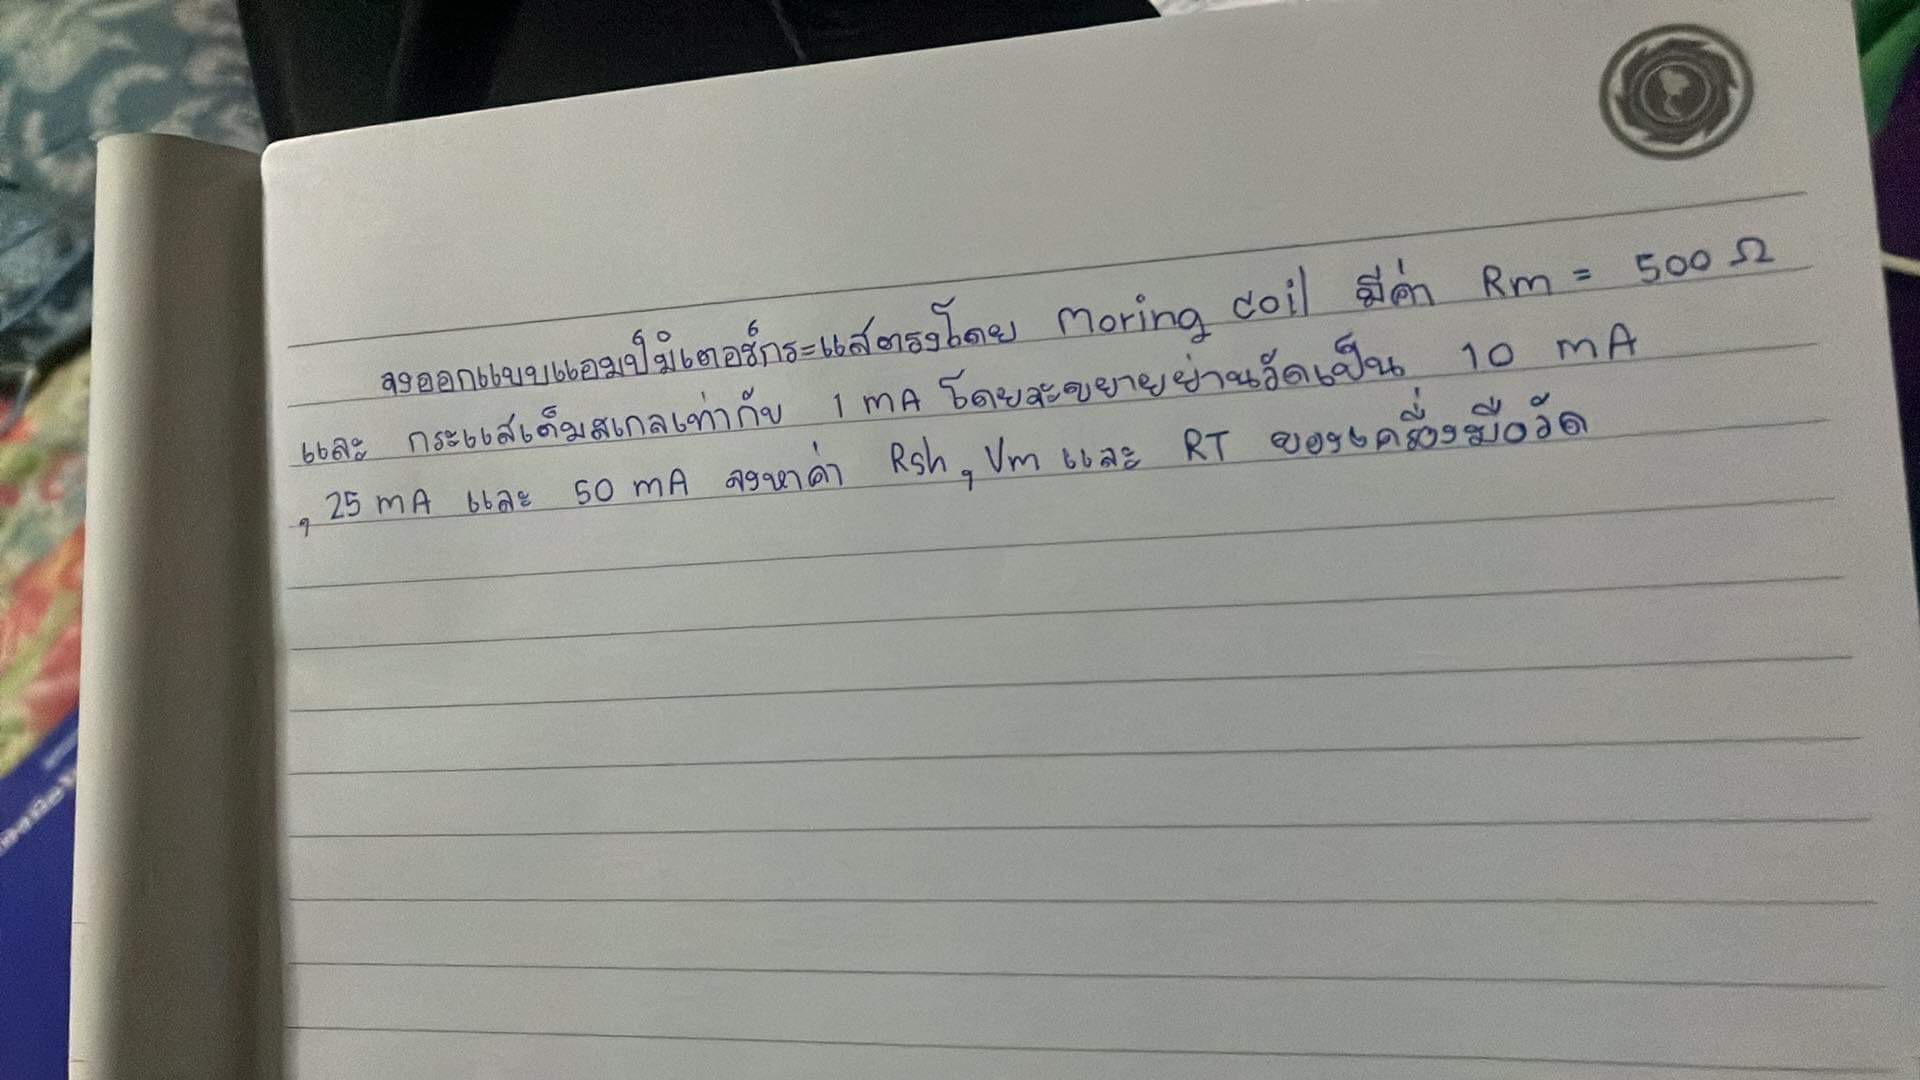 จงออกแบบแอมป์มิเตอร์กระแสตรงโดย Moring coil มีค่า Rm = 500 Ω
และ กระแสเต็มสเกลเท่ากับ 1 mA โดยจะขยายย่านวัดเป็น 10 mA
, 25 mA และ 50 mA จงหาค่า Rsh, Vm และ RT ของเครื่องมือวัด